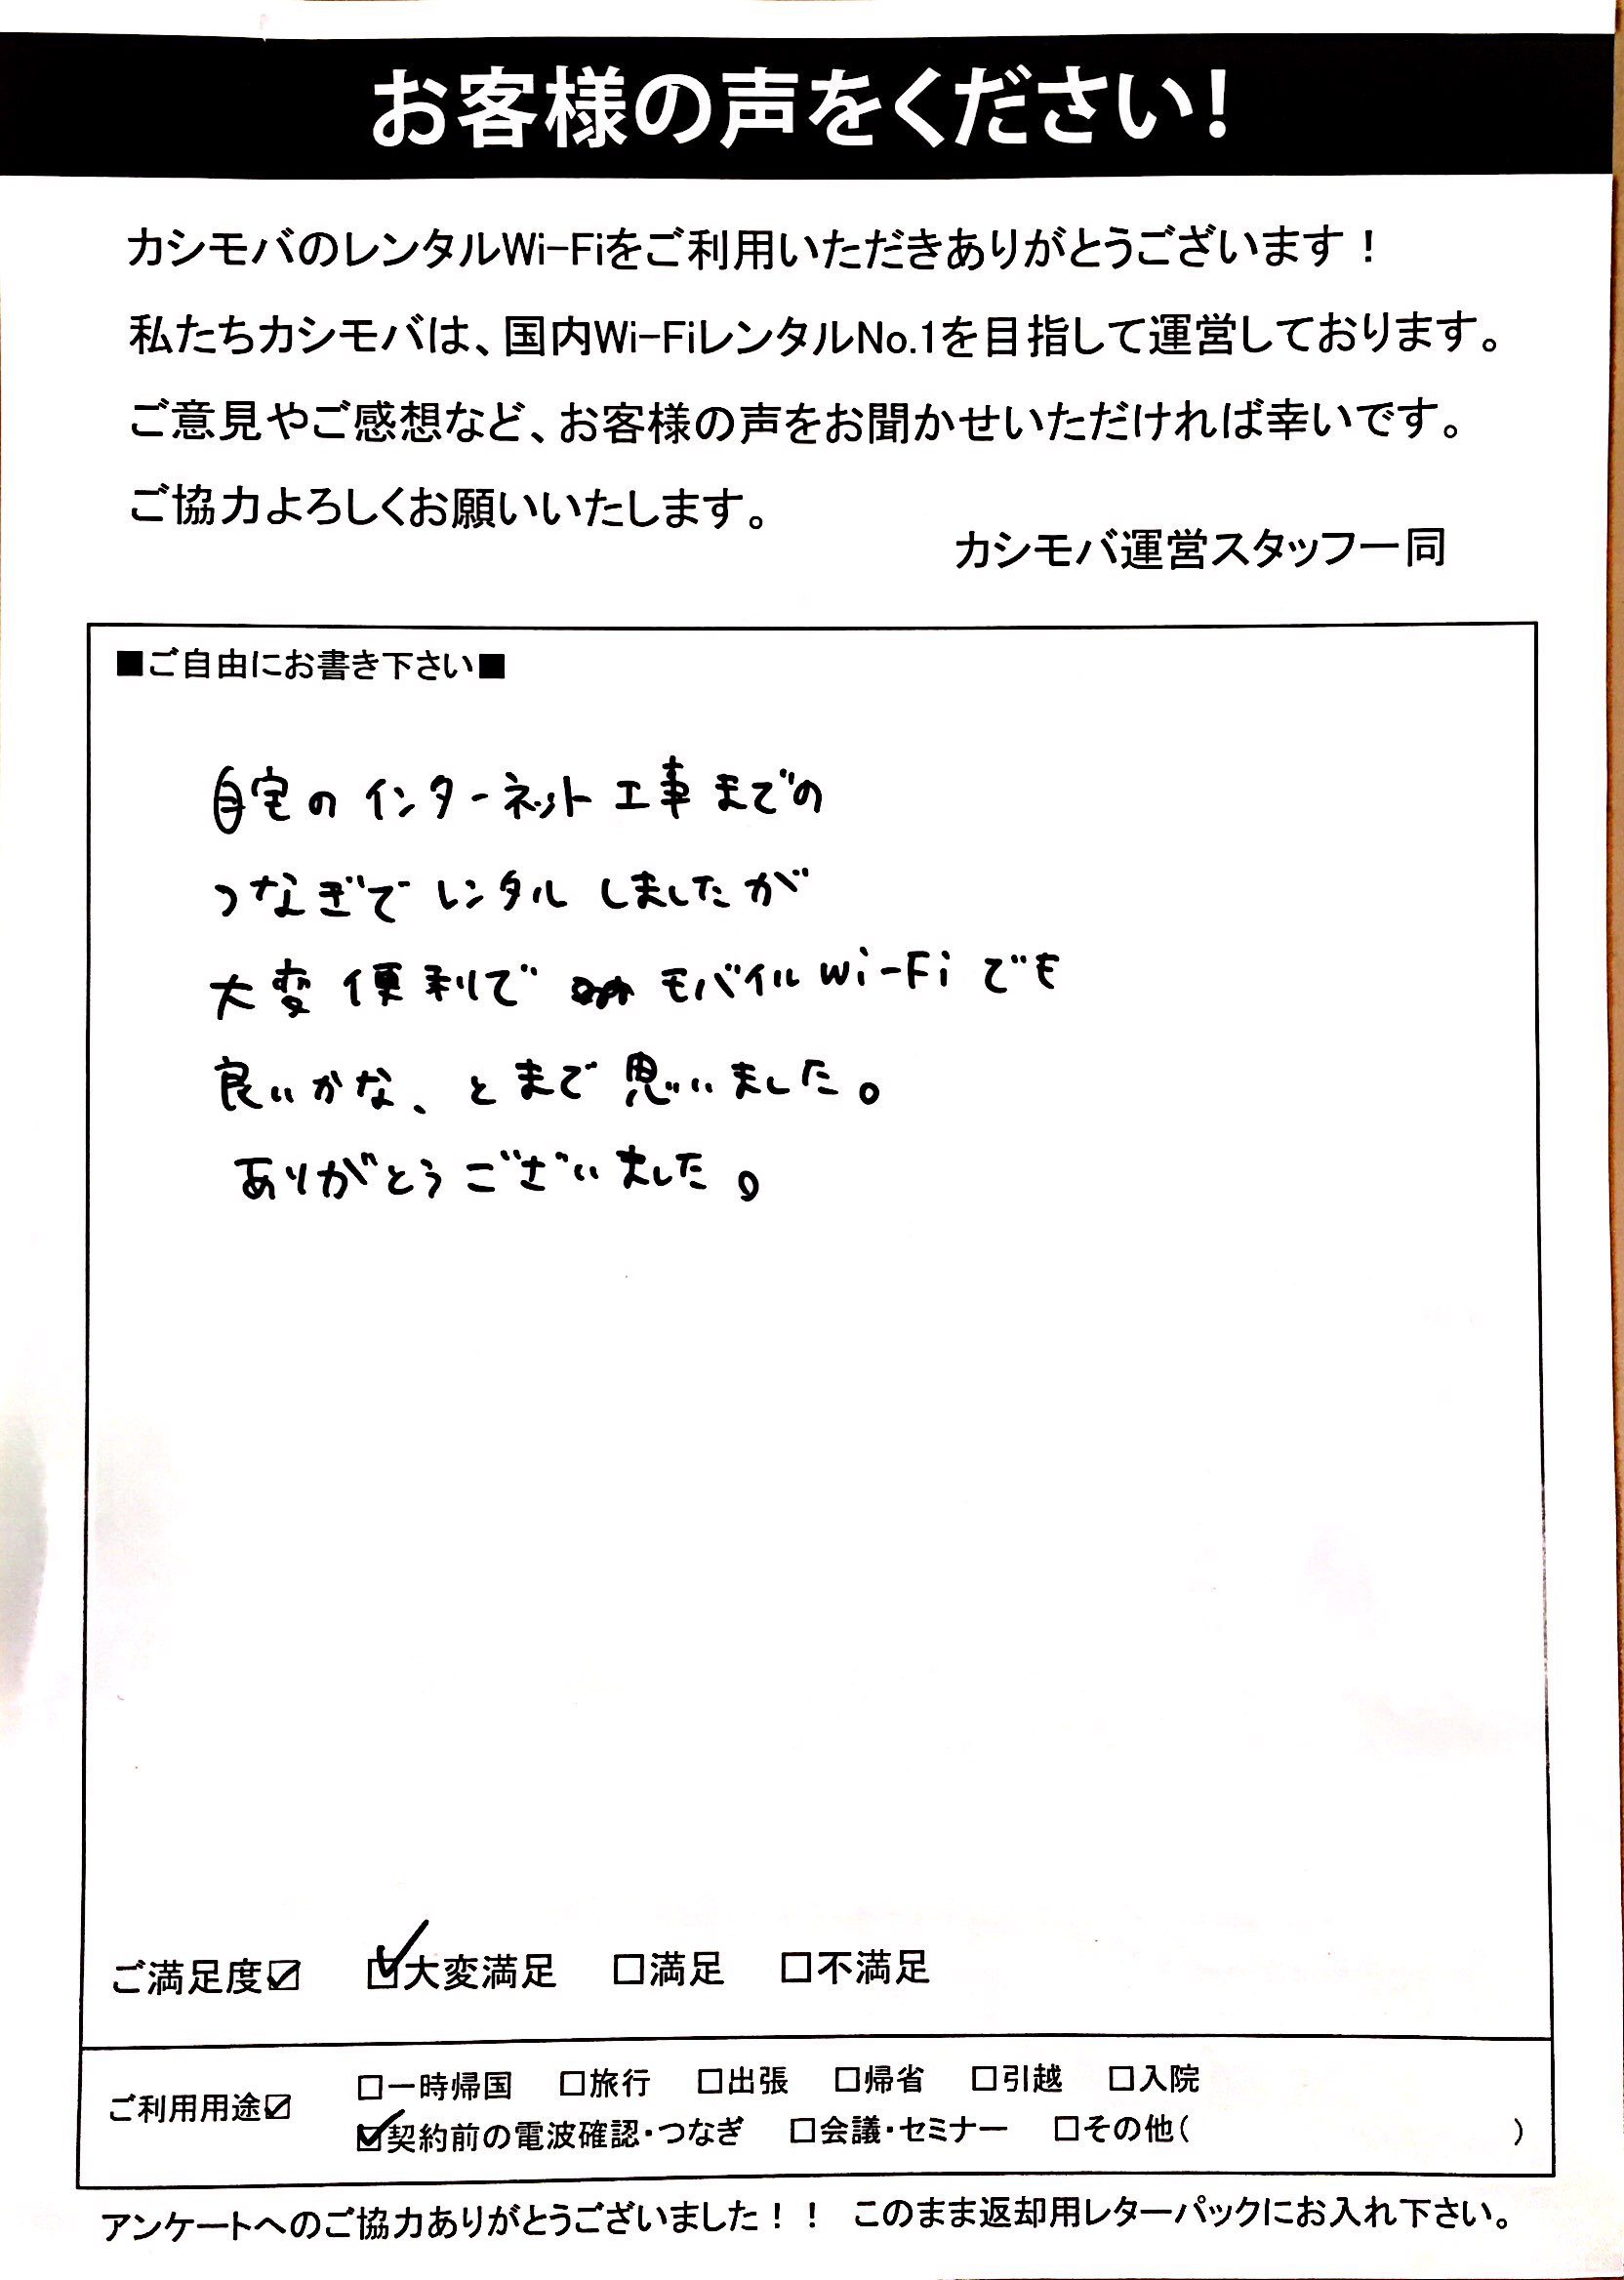 お客様の声をください!
カシモバのレンタルWi-Fiをご利用いただきありがとうございます！
私たちカシモバは、国内Wi-FiレンタルNo.1を目指して運営しております。
ご意見やご感想など、お客様の声をお聞かせいただければ幸いです。
ご協力よろしくお願いいたします。
カシモバ運営スタッフ一同
■ご自由にお書き下さい■
自宅のインターネット工事までの
つなぎでレンタルしましたが
大変便利でモバイルWi-Fiでも
良いかな、とまで思いました。
ありがとうございました。
ご満足度☑ ☑大変満足 □満足 □不満足
ご利用用途☑ □一時帰国 □旅行 □出張 □帰省 □引越 □入院
☑契約前の電波確認・つなぎ □会議・セミナー □その他( )
アンケートへのご協力ありがとうございました！！ このまま返却用レターパックにお入れ下さい。